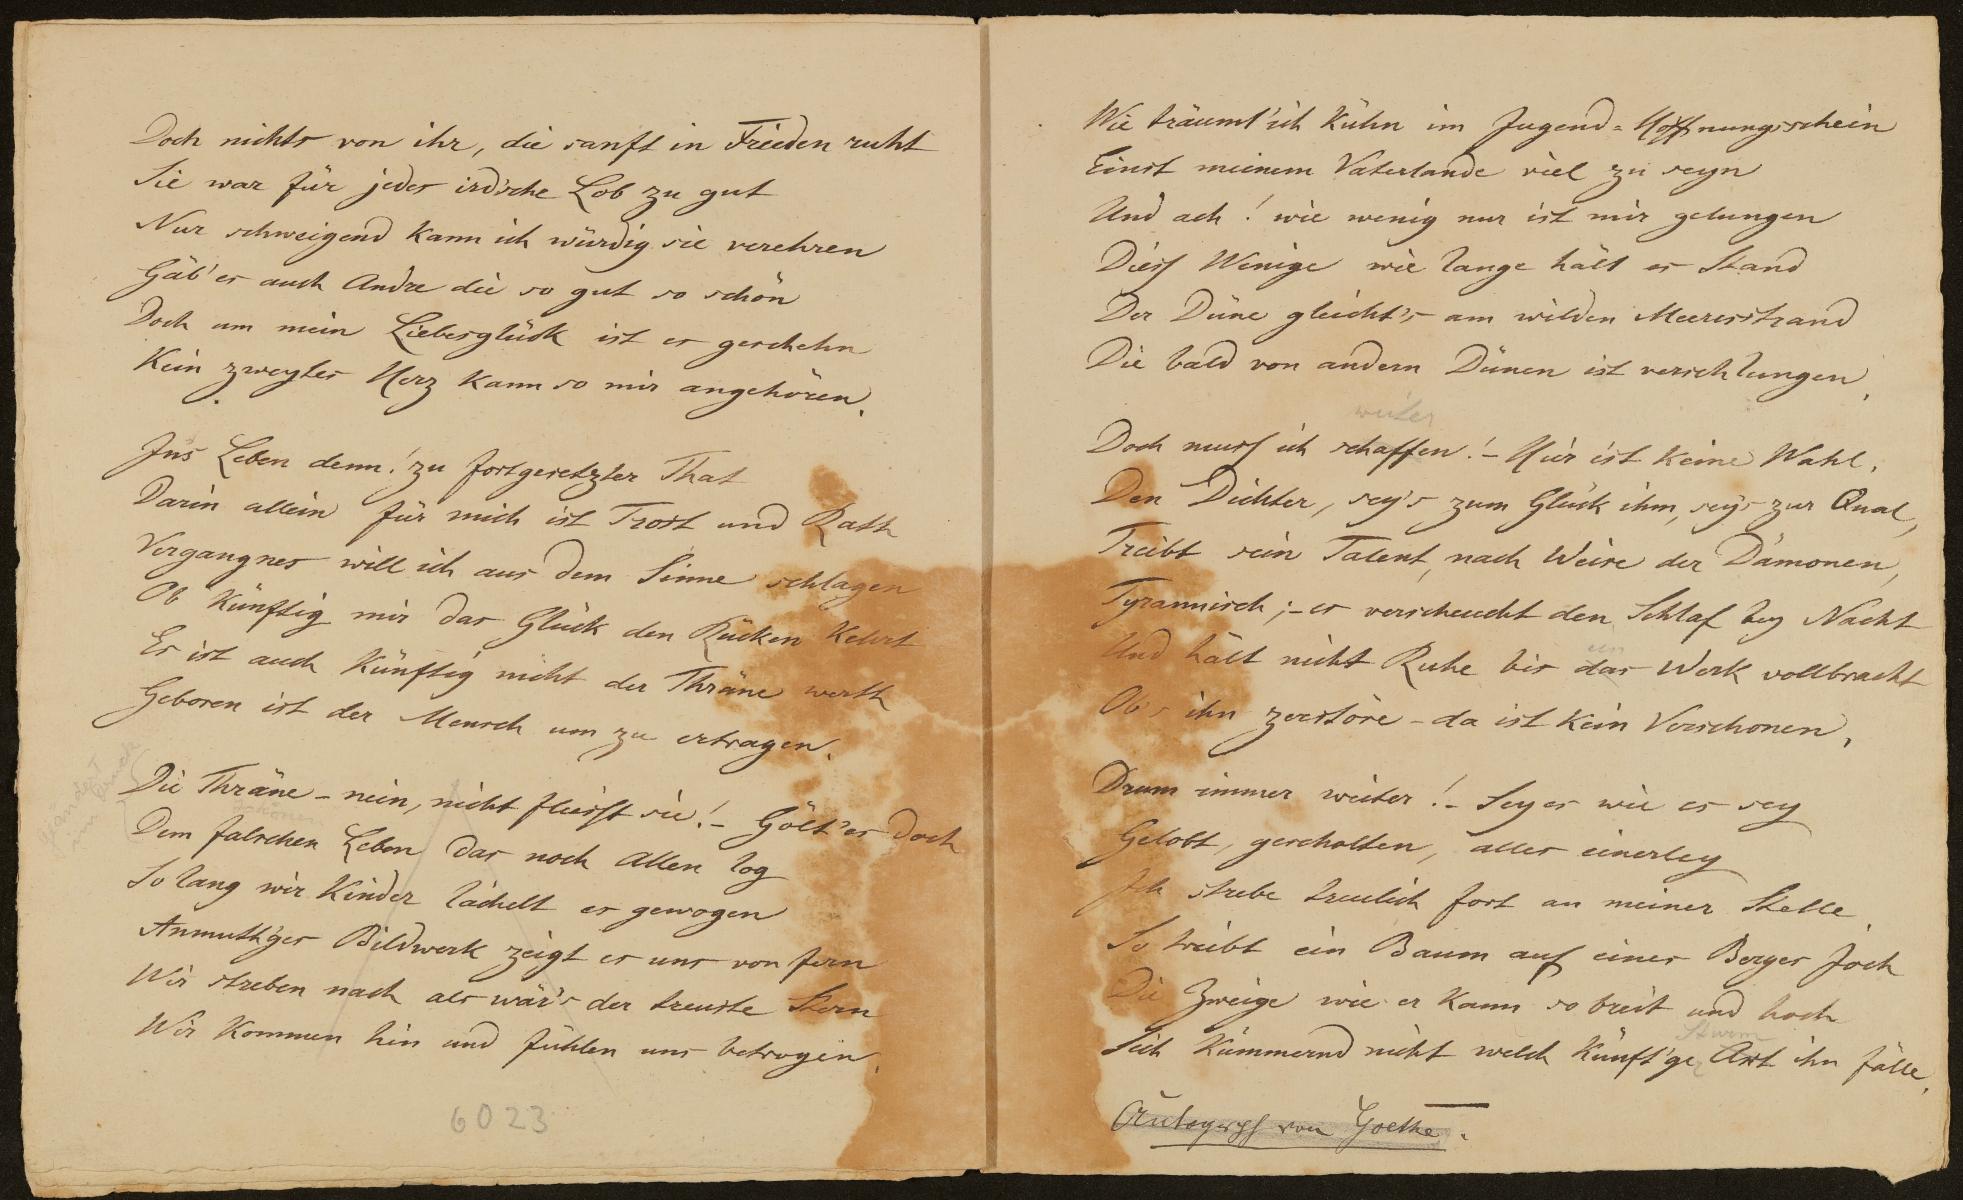 Doch nichts von ihr, die sanft in Frieden ruht
Sie war für jedes ird'sche Lob zu gut
Nur schweigend kann ich würdig sie verehren
Gäb' es auch Andre die so gut so schön
Doch um mein Liebesglück ist es geschehn
Kein zweytes Herz kann so mir angehören.
Ins Leben denn! zu fortgesetzter That
Darin allein für mich ist Trost und Rath
Vergangnes will ich aus dem Sinne schlagen
Ob künftig mir das Glück den Rücken kehrt
Es ist auch künftig nicht der Thräne werth
Geboren ist der Mensch um zu ertragen.
geändert
im Ernde
Die Thräne – nein, nicht fliesst sie! – Gölt' es doch
schönen
Dem falschen Leben das noch Allen log
So lang wir Kinder lächelt es gewogen
Anmuth'ges Bildwerk zeigt es uns von fern
Wir streben nach als wär's der treuste Stern
Wir kommen hin und fühlen uns betrogen.
6023
Wie träumt' ich kühn im Jugend=Hoffnungsschein
Einst meinem Vaterlande viel zu seyn
Und ach! wie wenig nur ist mir gelungen
Diess Wenige wie lange hält es Stand
Der Düne gleicht's am wilden Meeresstrand
Die bald von andern Dünen ist verschlungen.
weiter
Doch muss ich schaffen! – Hier ist keine Wahl.
Den Dichter, sey's zum Glück ihm, sey's zur Qual,
Treibt sein Talent, nach Weise der Dämonen,
Tyrannisch; – es verscheucht den Schlaf bey Nacht
un
Und hält nicht Ruhe bis das Werk vollbracht
Ob's ihn zerstöre – da ist kein Verschonen.
Drum immer weiter! – Sey es wie es sey
Gelobt, gescholten, alles einerley
Ich strebe treulich fort an meiner Stelle.
So treibt ein Baum auf eines Berges Joch
Die Zweige wie er kann so breit und hoch
Sturm
Sich kümmernd nicht welch künft'ge Axt ihn fälle.
Autogrph von Goethe.